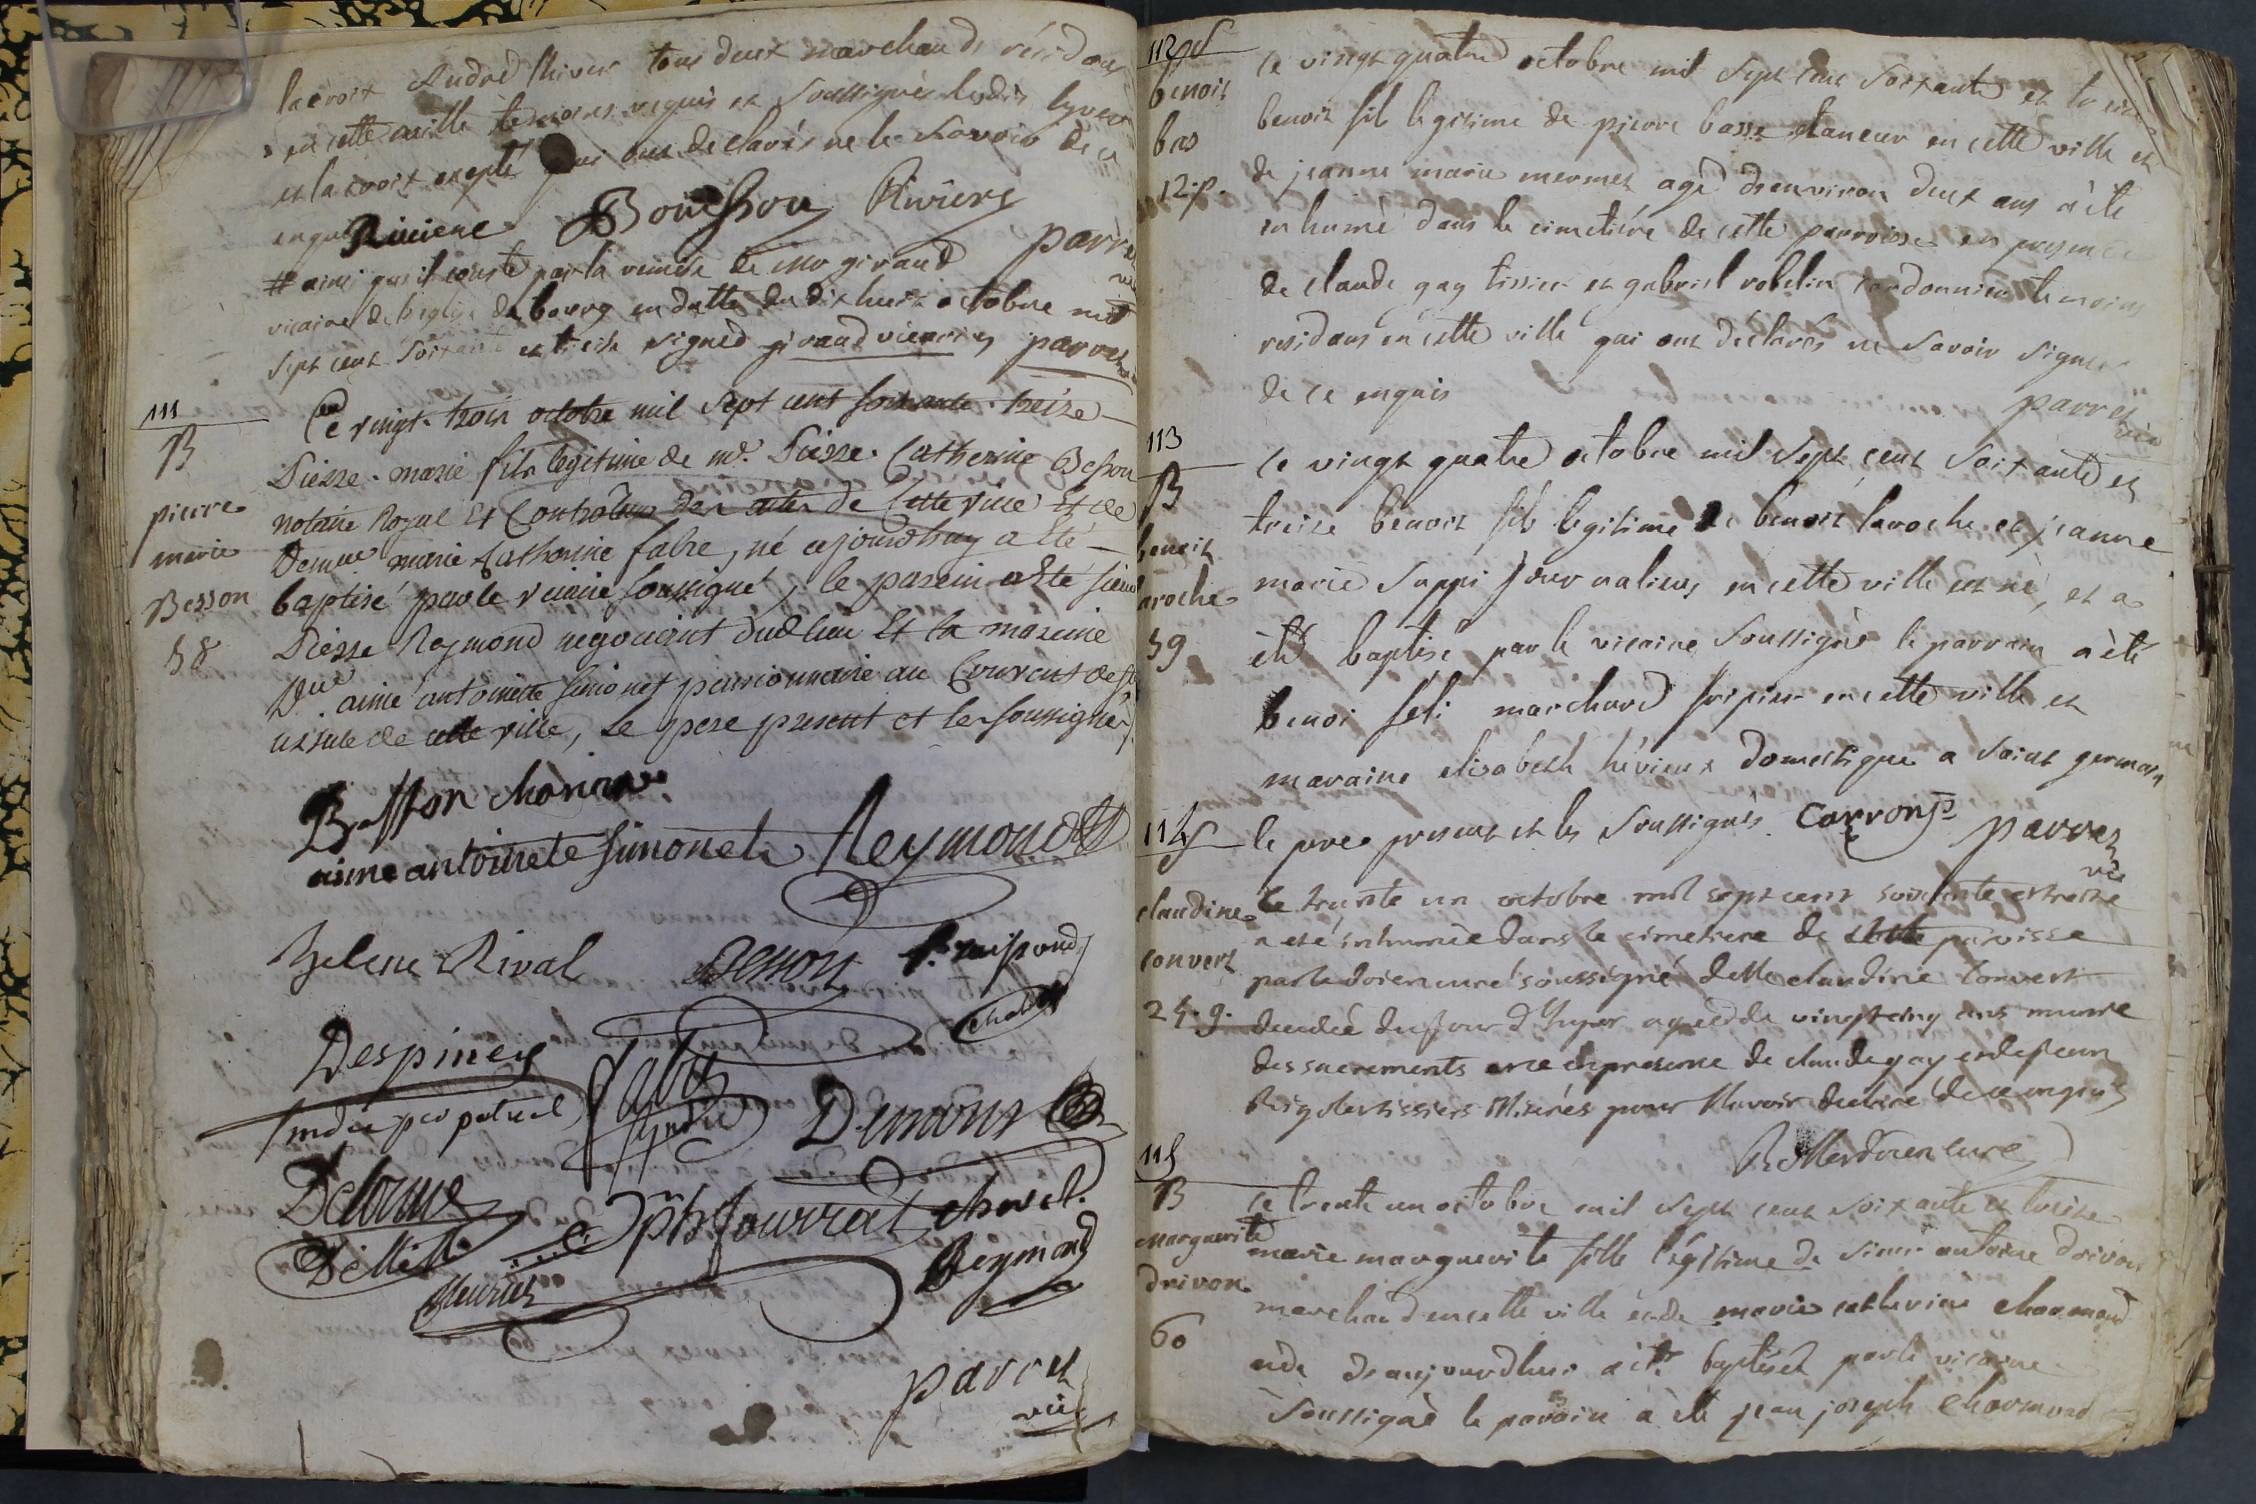 lacroix André thiver tous deux marchands résidans
en cette ville temoins requis et soussignés lesdis
et lacroix excepté qui ont declarés ne le savoir de ce
enquis Riviere Bouchou Riviere
parret vic
# ainsi quil conste par la remise de mr giraud
vicaire de leglise de bourg en datte du dixhuit octobre mil
sept cent soixante et treise signed giraud vicaire parret
111
B
pierre
marie
Besson
58
Ce vingt-trois octobre mil sept cent soixante-treize
Pierre-marie fils legitime de mr. Pierre-Catherine Besson
notaire Royal Et Controlleur des actes de Cette ville Et de
Demlle marie Catherine fabre, né cejourdhuy a Eté
baptisé par le vicaire soussigné, le parrein a Eté sieur
Pierre Reymond negociant dud. lieu Et la mareine
Dlle aimé antoinette simonet pensionnaire au Couvent de ste
ursule de cette ville, le pere present et les soussignés.
Besson
aime antoinete simonet Reymond
helene Rival Besson
Despiney
sindic perpetuel
Delorme
chovet.
Reymond
parret
vic
112 S
benoit
bas
12.p.
Ce vingt quatre octobre mil sept cent soixante et treise
benoit fils legitime de pierre basse taneur en cette ville et
de jeanne marie mermet agé denviron deux ans à èté
inhumé dans le cimetière de cette parroisse en presence
de claude gay tissier et gabriel robelin cordonnier temoins
residans en cette ville qui ont déclarés ne savoir signer
de ce enquis
parret
vic
113
B
benoit
laroche
59
Ce vingt quatre octobre mil sept cent soixante et
treise benoit fils legitime de benoit laroche et jeanne
marie suppi journaliers en cette ville est né, et a
èté baptisé par le vicaire soussigné le parrain a èté
benoi feli marchand fripier en cette ville et
maraine elisabeth hévieux domestique a saint germain
le pere present et les soussignés. Carron parret
vic
114 S
claudine
convert
25.g.
Le trente un octobre mil sept cent soixante et treize
a eté inhumée dans le cimetiere de cette paroisse
par le doien curé soussigné delle claudine Convert
decedée du jour d'hyer agée de vingt cinq ans munie
des sacrements en presence de claude gay et
Rigolet tissiers Illiterés pour lavoir declaré de ce enquis
doien curé
115
B
marguerite
drivon
60
Ce trente un octobre mil sept cent soixante et treise
marie marguerite fille légitime de sieur antoine drivon
marchand en cette ville et de marie catherine charmond
née de aujourdhui a èté baptisée par le vicaire
soussigné le parain à èté jean joseph charmond